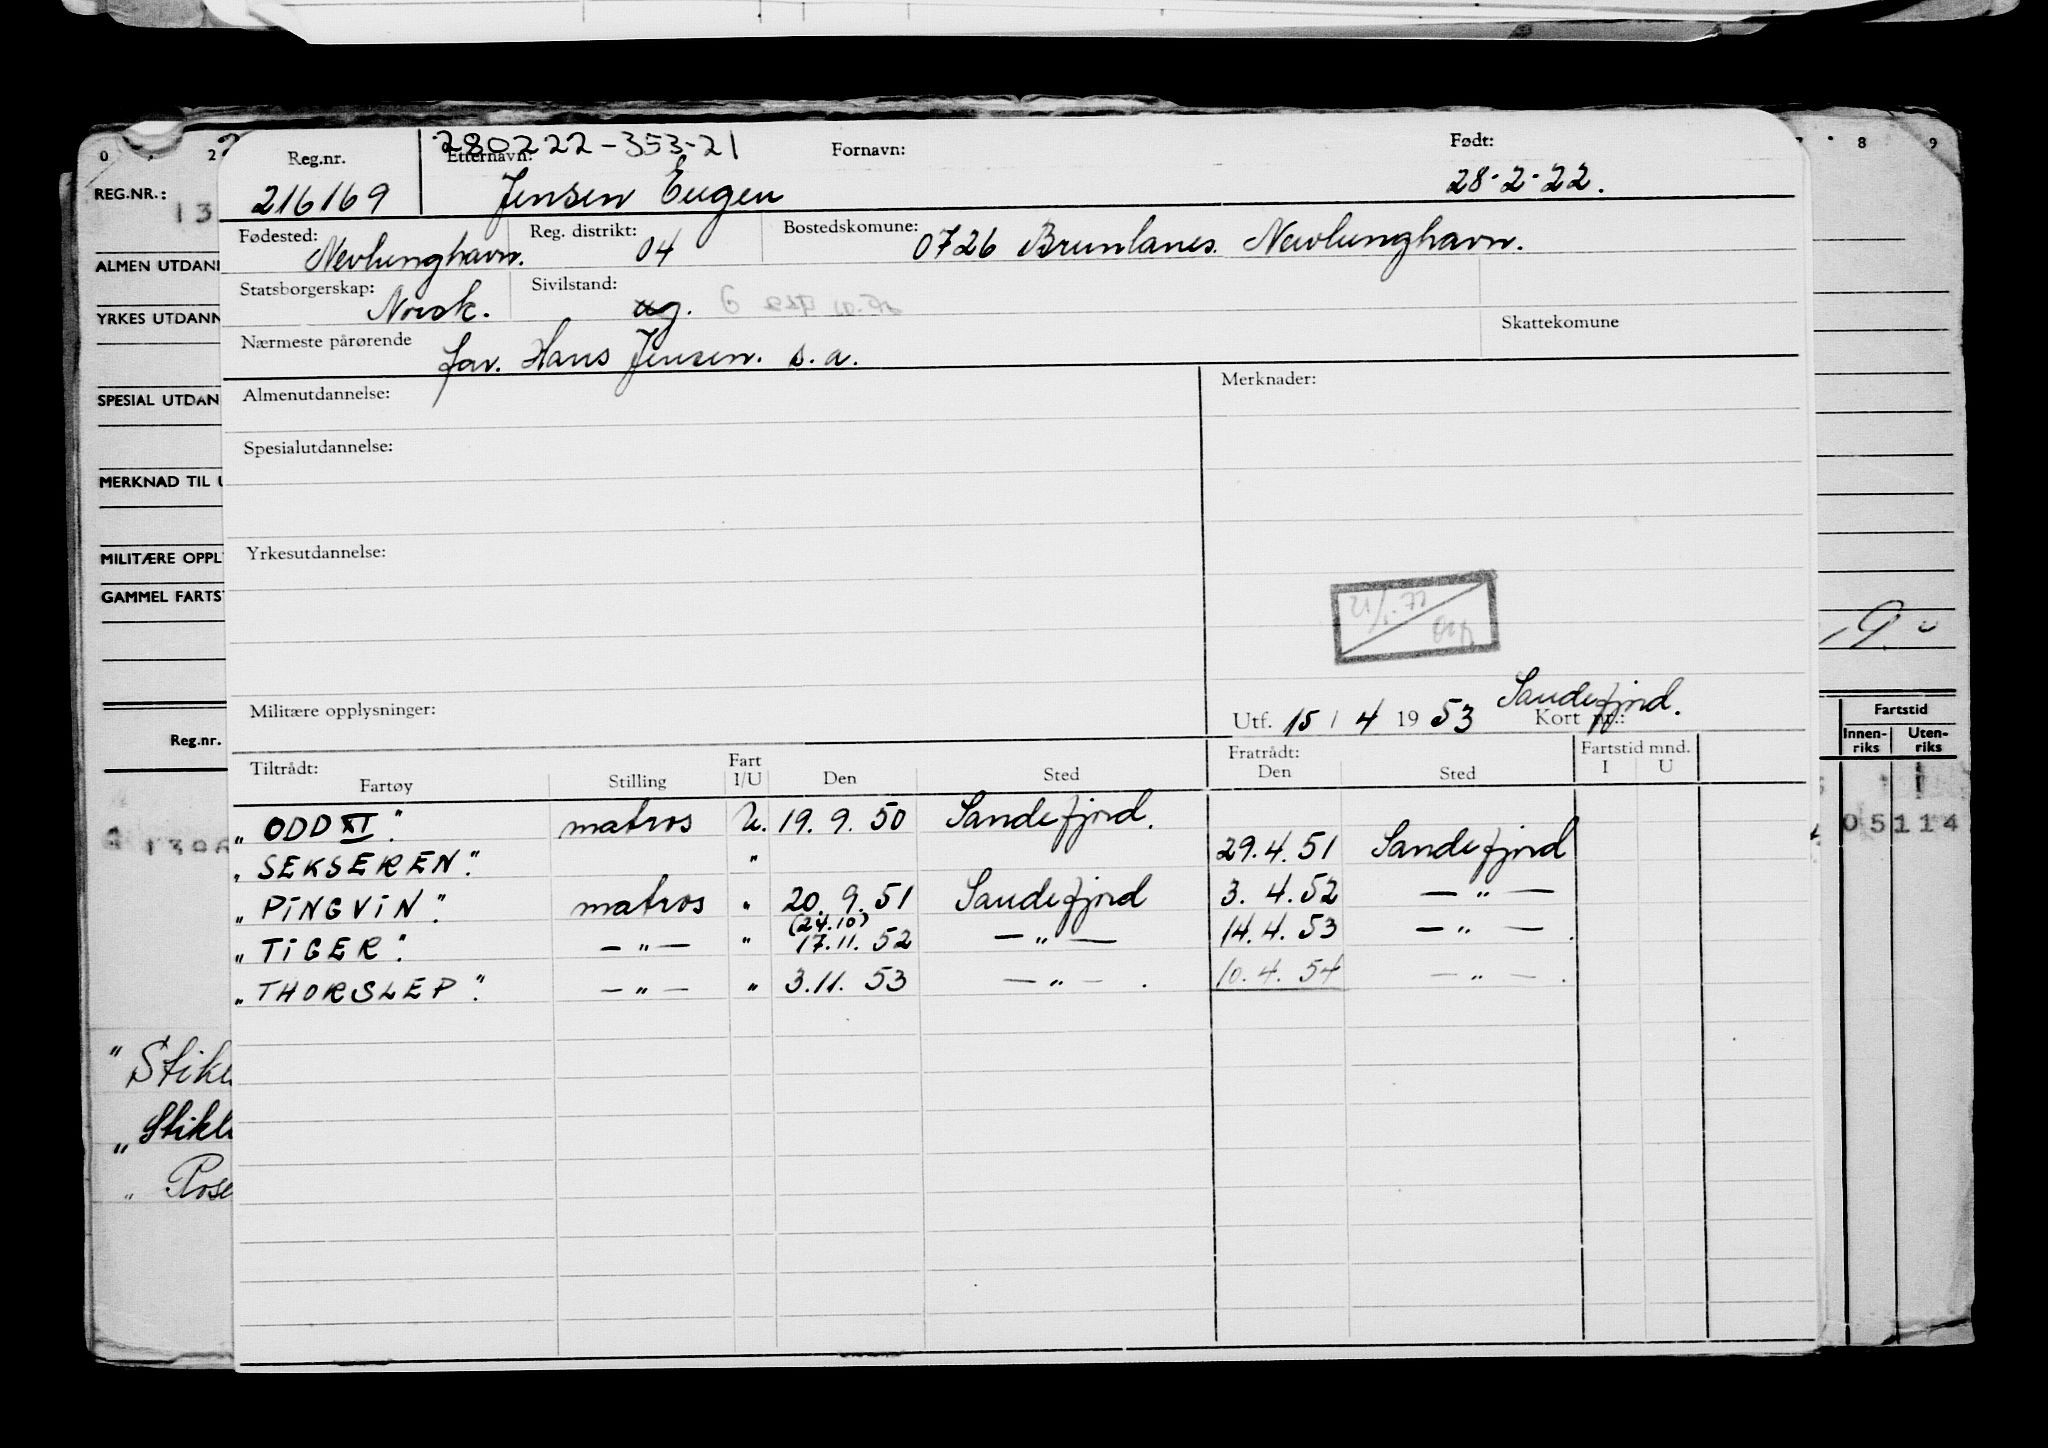 0 . 2 8 9
280222-353-21
Reg.nr. Etternavn: Fornavn: Født:
REG.NR.: 216169 Jensen Eugen 28-2-22.
13
Fødested: Reg. distrikt: Bostedskomune:
Nevlunghavn. 04 0726 Brunlanes. Nevlunghavn.
ALMEN UTDANN
Statsborgerskap: Sivilstand:
Norsk. ug. G
YRKES UTDANN Skattekomune
Nærmeste pårørende
far. Hans Jensen. s.a.
Almenutdannelse: Merknader:
SPESIAL UTDAN
Spesialutdannelse:
MERKNAD TIL U
Yrkesutdannelse:
MILITÆRE OPPL
GAMMEL FARTST
Militære opplysninger: Utf. 15/4 1953 Sandefjord. Kort nr.:
Reg.nr. Fartstid
Innen-riks Uten-riks
Tiltrådt: Fart Fratrådt: Fartstid mnd.
Fartøy Stilling I/U Den Sted Den Sted I U
"ODD XI". matros U. 19. 9. 50 Sandefjord.
05114
"SEKSEREN". " 29.4.51 Sandefjord
"PINGVIN". matros " 20. 9. 51 Sandefjord 3. 4.52 — " —
(24.10)
"TIGER". — " — " 17.11. 52 — " — 14.4.53 — " — .
"THORSLEP". — " — " 3.11. 53 — " — . 10.4. 54 — " — .
"Stikl
"Stikl
" Rose